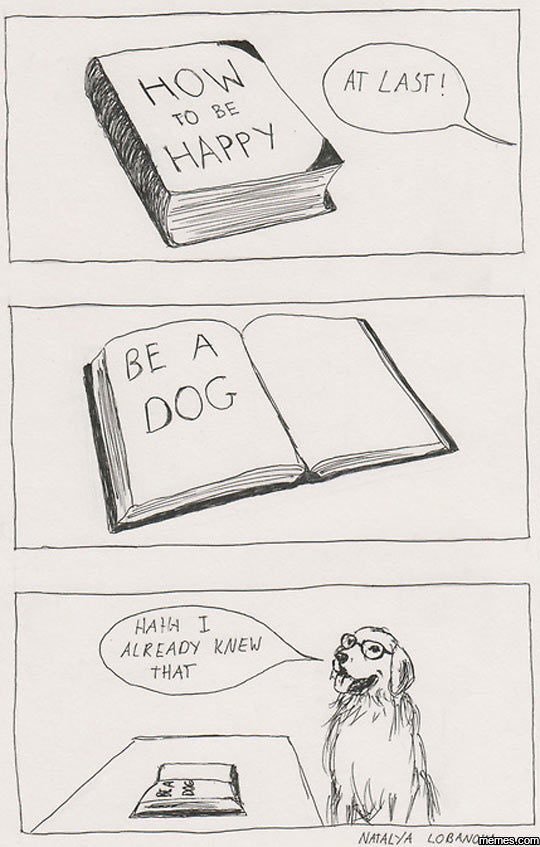 HOW
TO BE
HAPPY
AT LAST!
BE A
DOG
HAHA I
ALREADY KNEW
THAT
BE A
DOG
NATALYA
memes.com